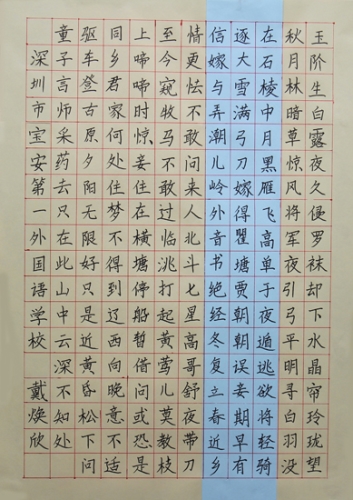 玉阶生白露夜久侵罗袜却下水晶帘玲珑望
秋月林暗草惊风将军夜引弓平明寻白羽没
在石棱中月黑雁飞高单于夜遁逃欲将轻骑
逐大雪满弓刀嫁得瞿塘贾朝朝误妾期早有
信嫁与弄潮儿岭外音书绝经冬复立春近乡
情更怯不敢问来人北斗七星高哥舒夜带刀
至今窥牧马不敢过临洮打起黄莺儿莫教枝
上啼啼时惊妾住在横塘停船暂借问或恐是
同乡君家何处住梦不得到辽西向晚意不适
驱车登古原夕阳无限好只是近黄昏松下问
童子言师采药去只在此山中云深不知处
深圳市宝安第一外国语学校 戴焕欣